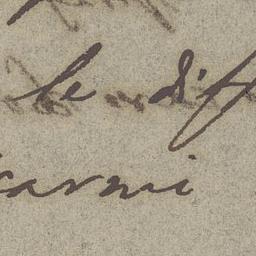 le diff
carmi